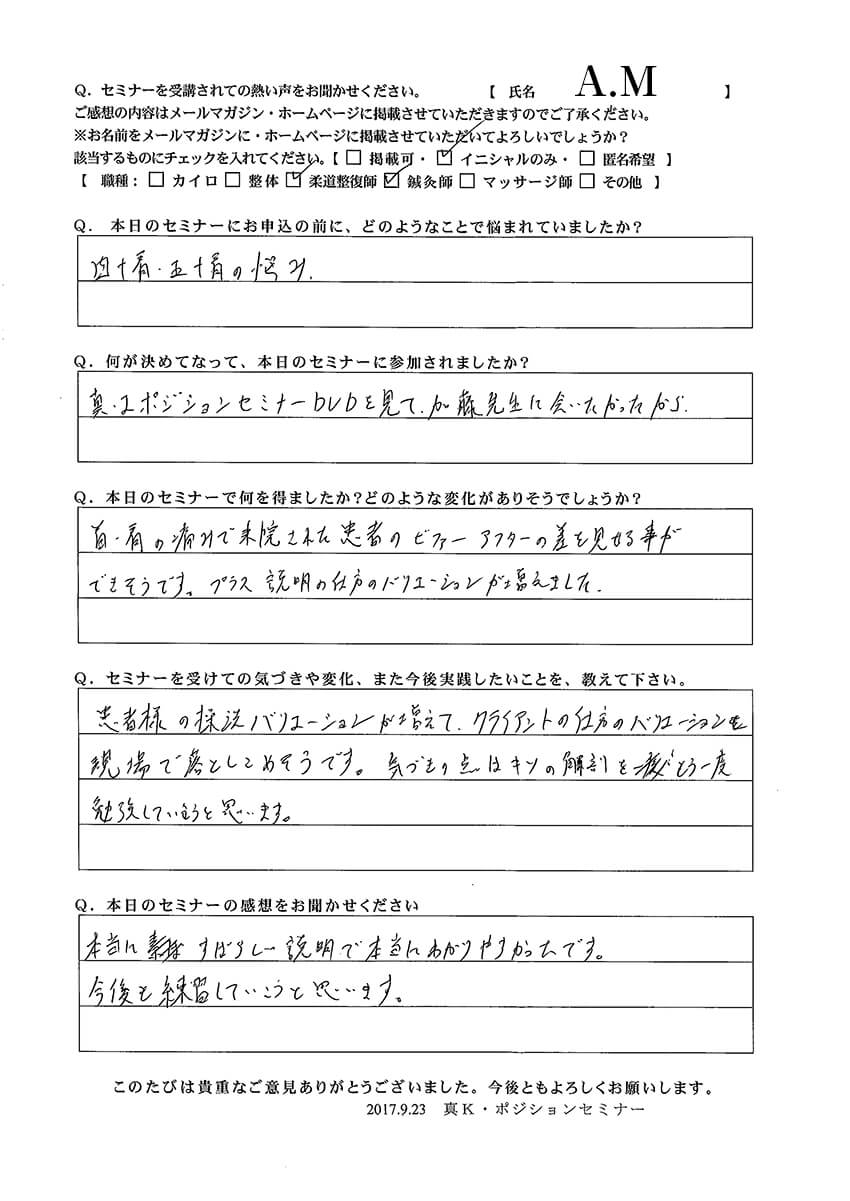 Q．セミナーを受講されての熱い声をお聞かせください。　【　氏名　A.M　】
ご感想の内容はメールマガジン・ホームページに掲載させていただきますのでご了承ください。
※お名前をメールマガジンに・ホームページに掲載させていただいてよろしいでしょうか？
該当するものにチェックを入れてください。【 □ 掲載可・ ☑ イニシャルのみ・ □ 匿名希望 】
【 職種： □ カイロ □ 整体 ☑ 柔道整復師 ☑ 鍼灸師 □ マッサージ師 □ その他 】
Q． 本日のセミナーにお申込の前に、どのようなことで悩まれていましたか？
四十肩・五十肩の悩み.
Q．何が決めてなって、本日のセミナーに参加されましたか？
真・ポジションセミナーDVDを見て、加藤先生に会いたかったから.
Q．本日のセミナーで何を得ましたか？どのような変化がありそうでしょうか？
首・肩の痛みで来院された患者のビファーアフターの差を見せる事が
できそうです。プラス説明の仕方のバリエーションが増えました.
Q．セミナーを受けての気づきや変化、また今後実践したいことを、教えて下さい。
患者様の バリエーションが増えて、クライアントの仕方のバリエーションを
現場で落としこめそうです。気づきの点はキソの解剖を もう一度
勉強していこうと思います。
Q．本日のセミナーの感想をお聞かせください
本当に すばらしー説明で本当にわかりやすかったです。
今後も練習していこうと思います。
このたびは貴重なご意見ありがとうございました。今後ともよろしくお願いします。
2017.9.23　真K・ポジションセミナー